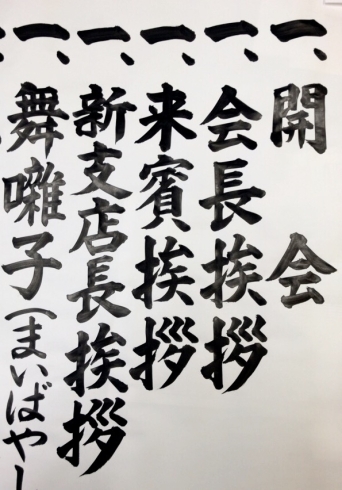 一、開会
一、会長挨拶
一、来賓挨拶
一、新支店長挨拶
一、舞囃子（まいばやし